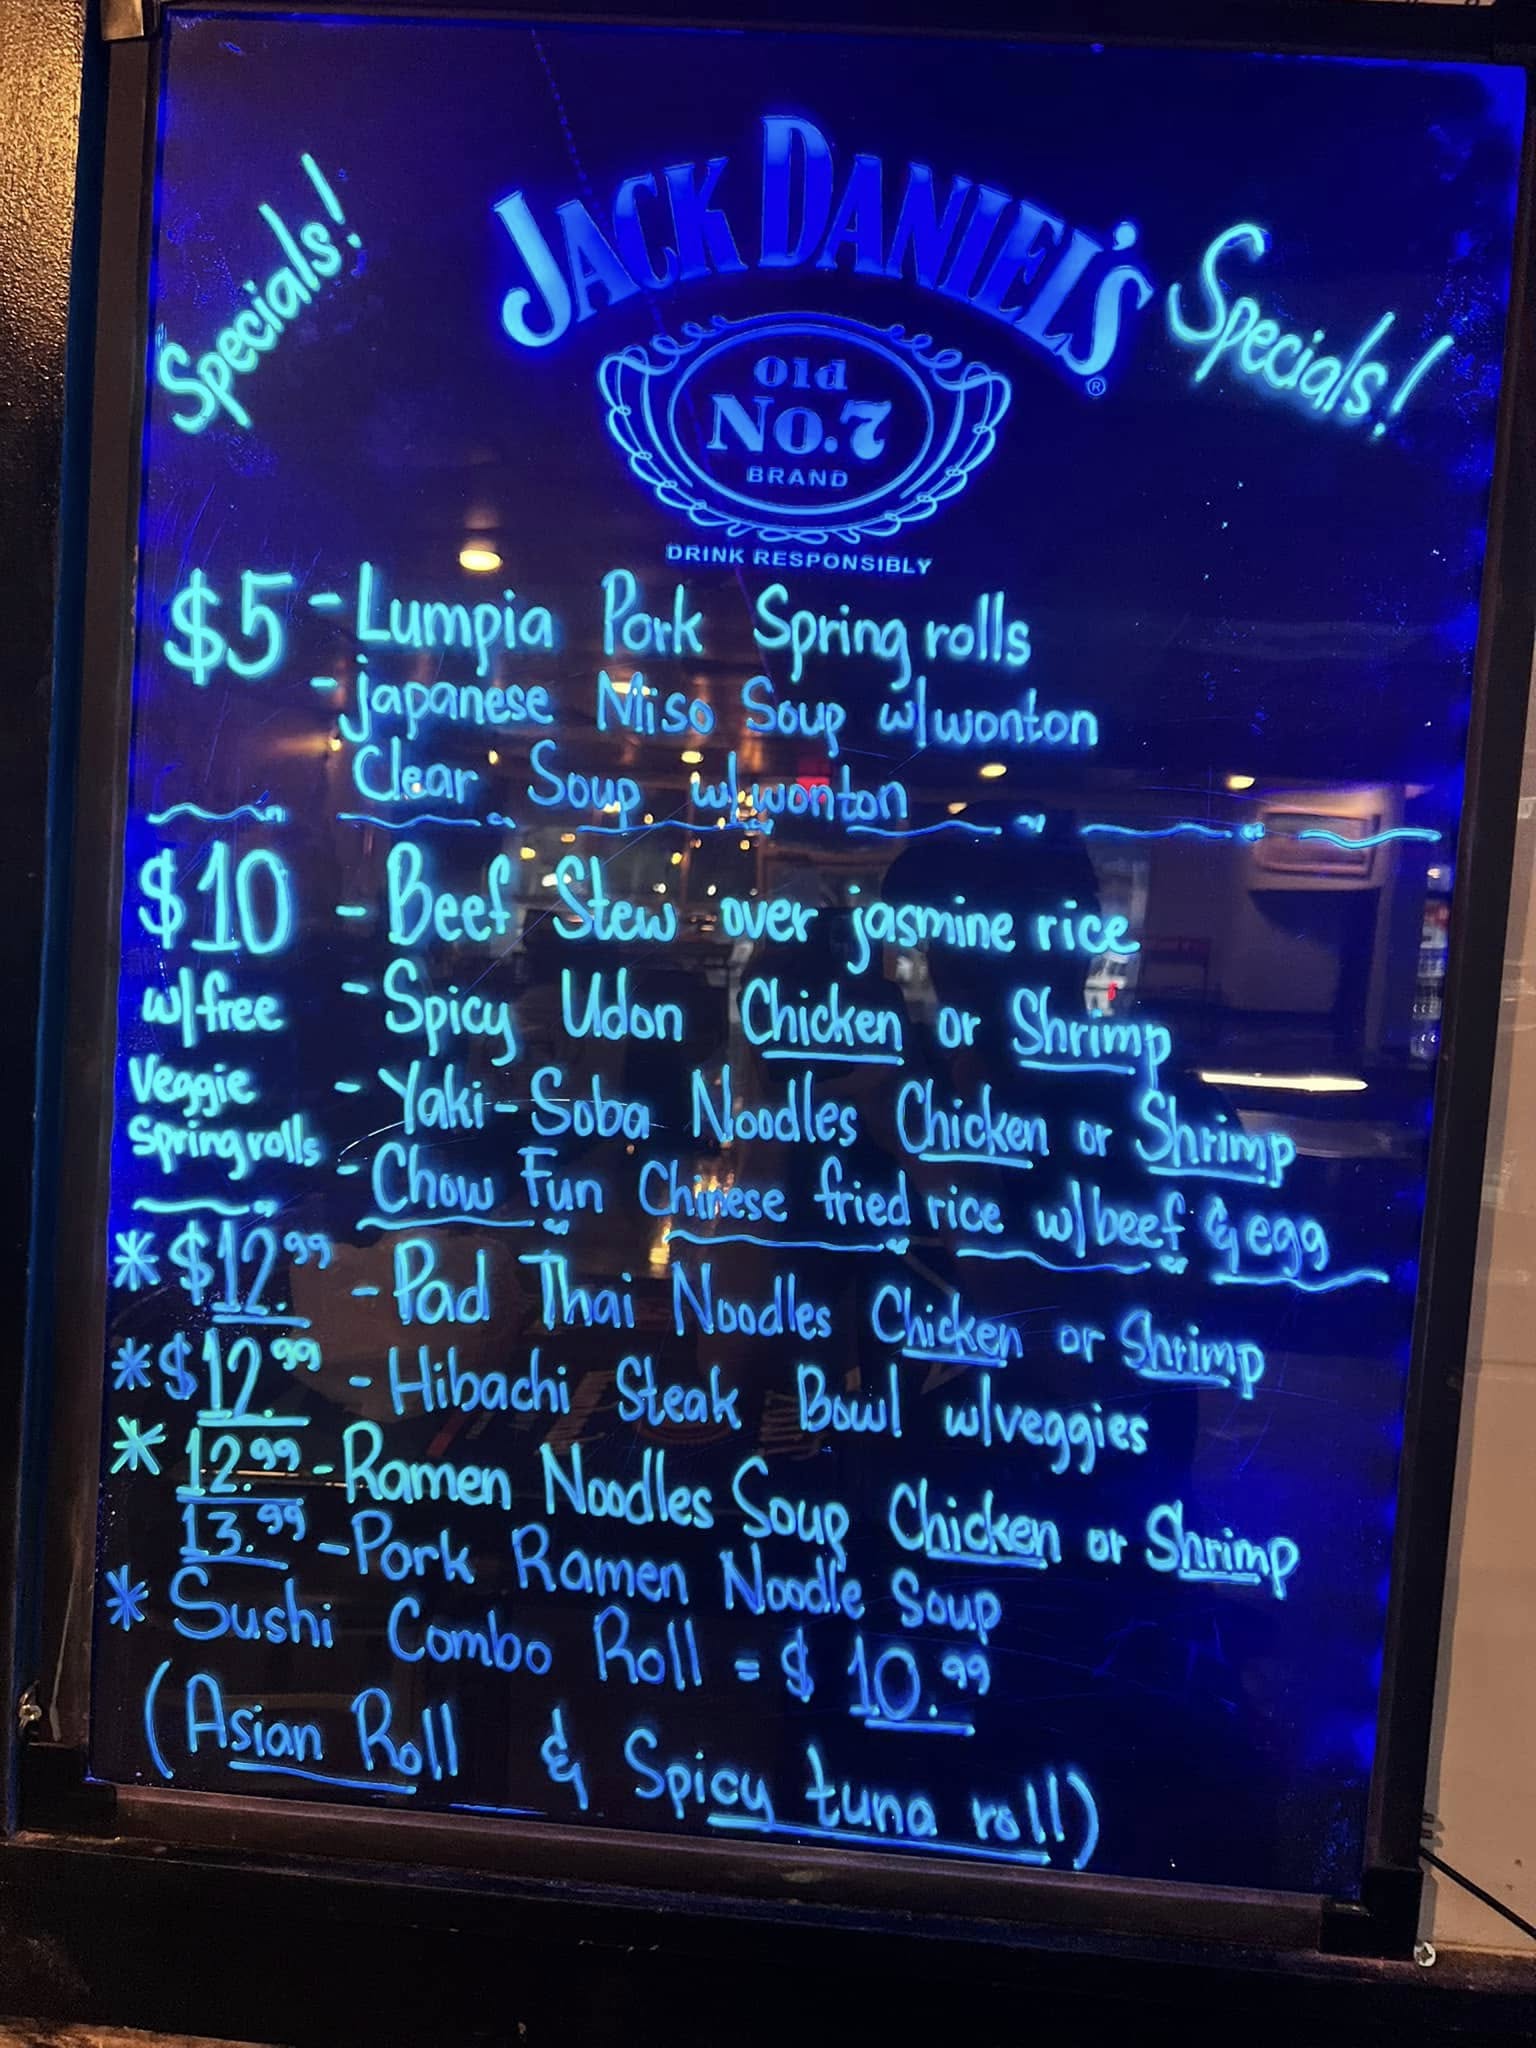 Specials!
JACK DANIEL'S
Specials!
Old
No.7
BRAND
®
DRINK RESPONSIBLY
$5 - Lumpia Pork Spring rolls
- japanese Miso Soup w/wonton
Clear Soup w/wonton
$10 - Beef Stew over jasmine rice
w/free - Spicy Udon Chicken or Shrimp
Veggie - Yaki-Soba Noodles Chicken or Shrimp
Spring rolls - Chow Fun Chinese fried rice w/beef & egg
* $12.99 - Pad Thai Noodles Chicken or Shrimp
* $12.99 - Hibachi Steak Bowl w/veggies
* 12.99 - Ramen Noodles Soup Chicken or Shrimp
13.99 - Pork Ramen Noodle Soup
* Sushi Combo Roll = $10.99
(Asian Roll & Spicy tuna roll)